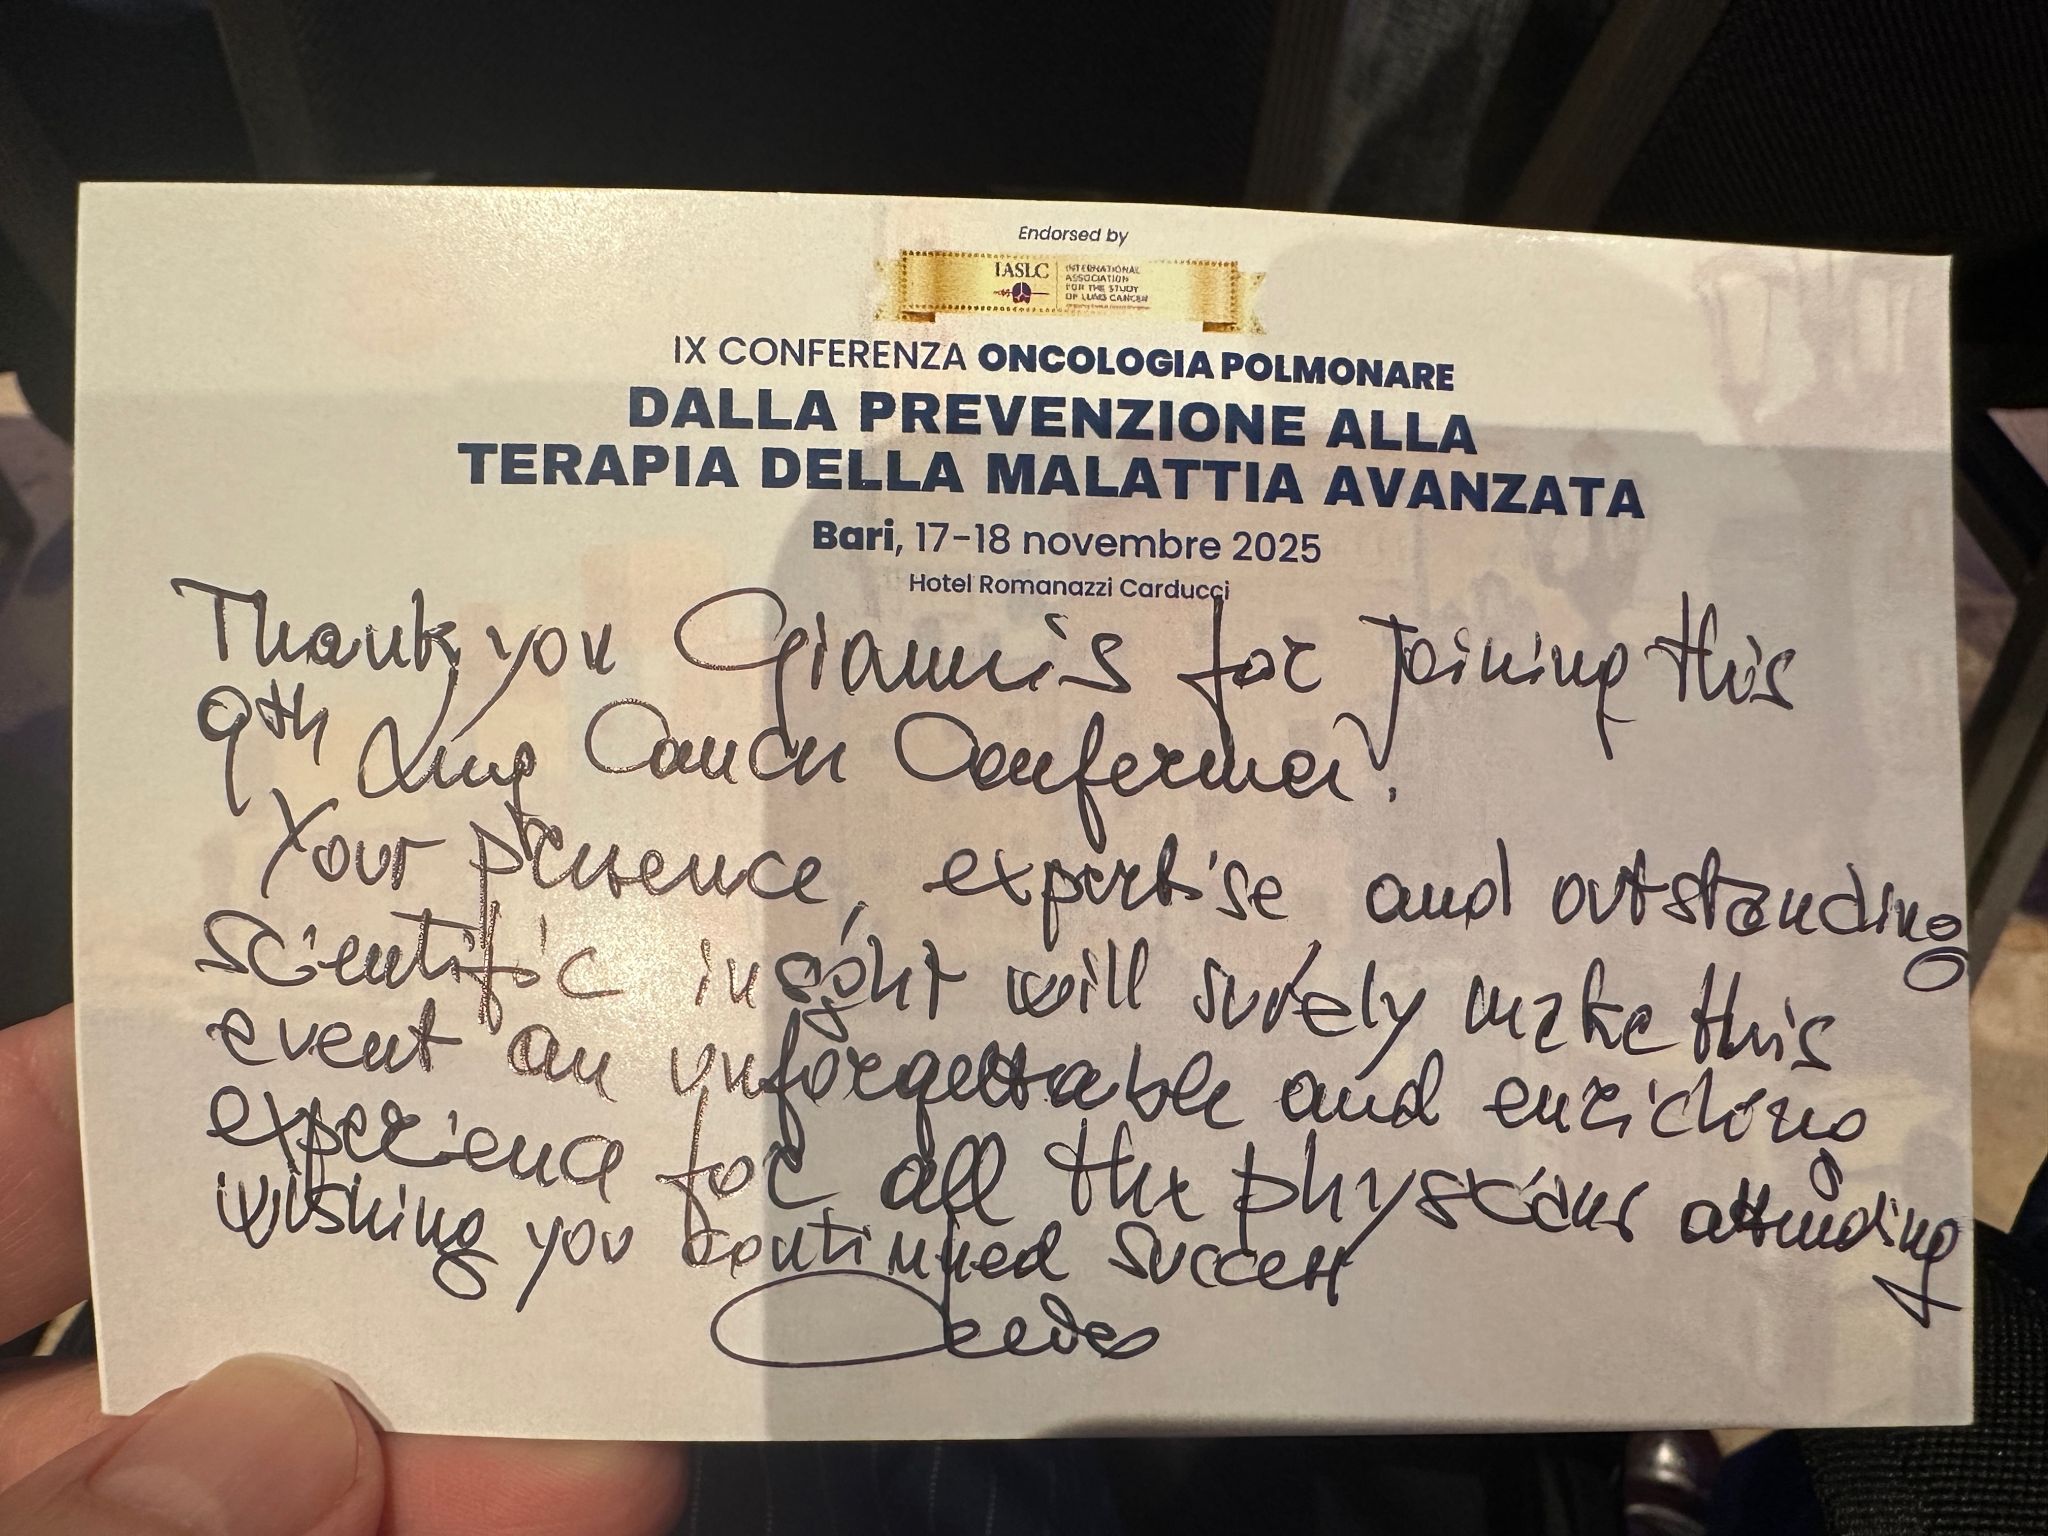 Endorsed by
IASLC
INTERNATIONAL
ASSOCIATION
FOR THE STUDY
OF LUNG CANCER
IX CONFERENZA ONCOLOGIA POLMONARE
DALLA PREVENZIONE ALLA
TERAPIA DELLA MALATTIA AVANZATA
Bari, 17-18 novembre 2025
Hotel Romanazzi Carducci
Thank you Giannis for joining this
9th Lung Cancer Conference!
Your presence, expertise and outstanding
scientific insight will surely make this
event an unforgettable and enriching
experience for all the physicians attending
wishing you continued success